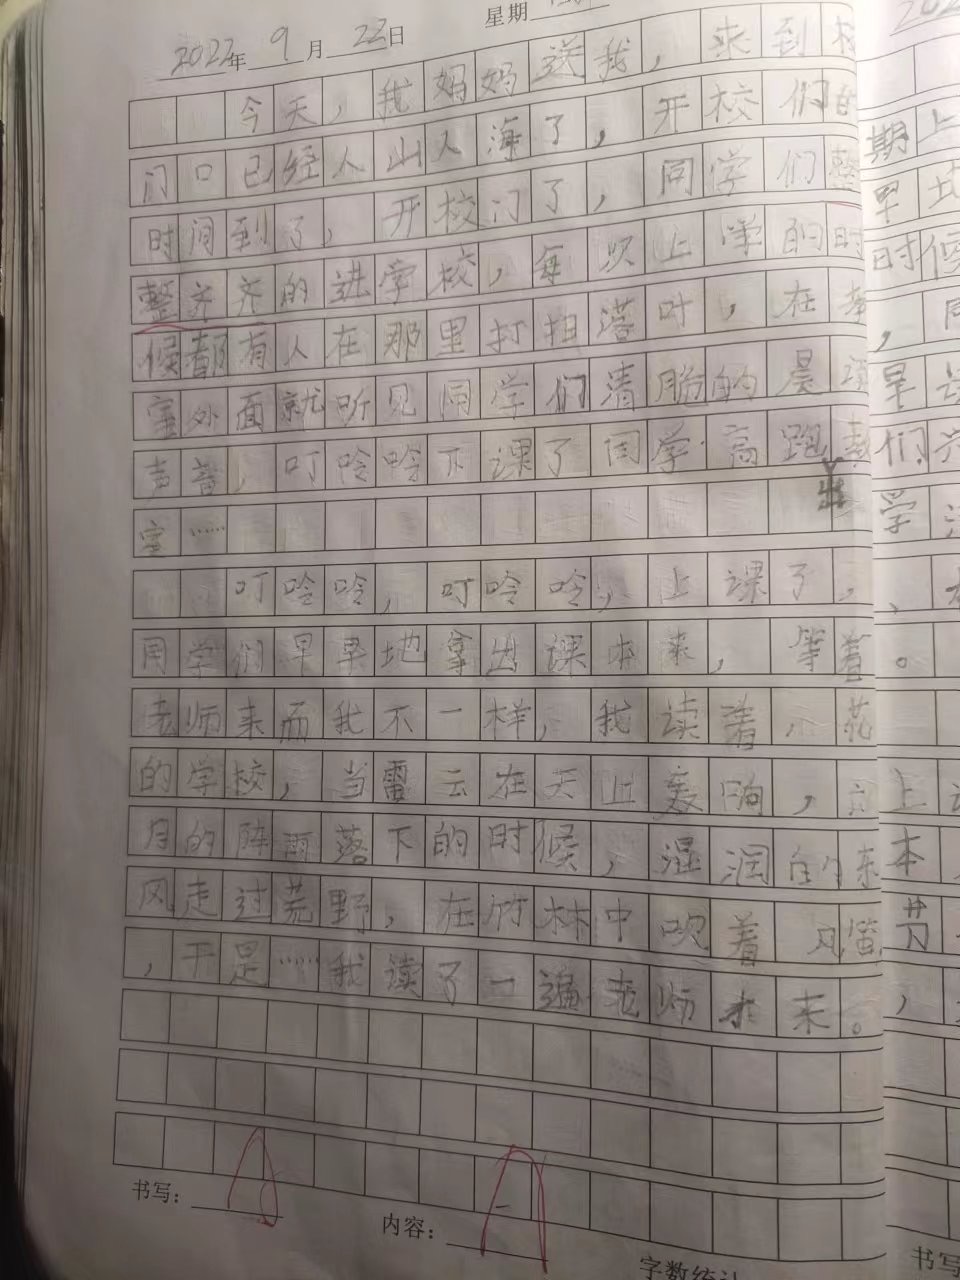 2022年9月22日 星期
今天，我妈妈送我，来到校
门口已经人山人海了，开校们的
时间到了，开校门了，同学们整
整齐齐的进学校，每次上学的时
候都有人在那里打扫落叶，在教
室外面就听见同学们清脆的晨读
声音，叮呤呤下课了同学高跑教
出
室……
叮呤呤，叮呤呤，上课了，
同学们早早地拿出课本来，等着
老师来而我不一样，我读着，花
的学校，当雷云在天上轰响，六
月的阵雨落下的时候，湿润的东
风走过荒野，在竹林中吹着风笛
，于是……我读了一遍老师才来。
书写：A
内容：A
字数统计
期上
早
时候
，同
早读
们
学
。
上
本
，
书写